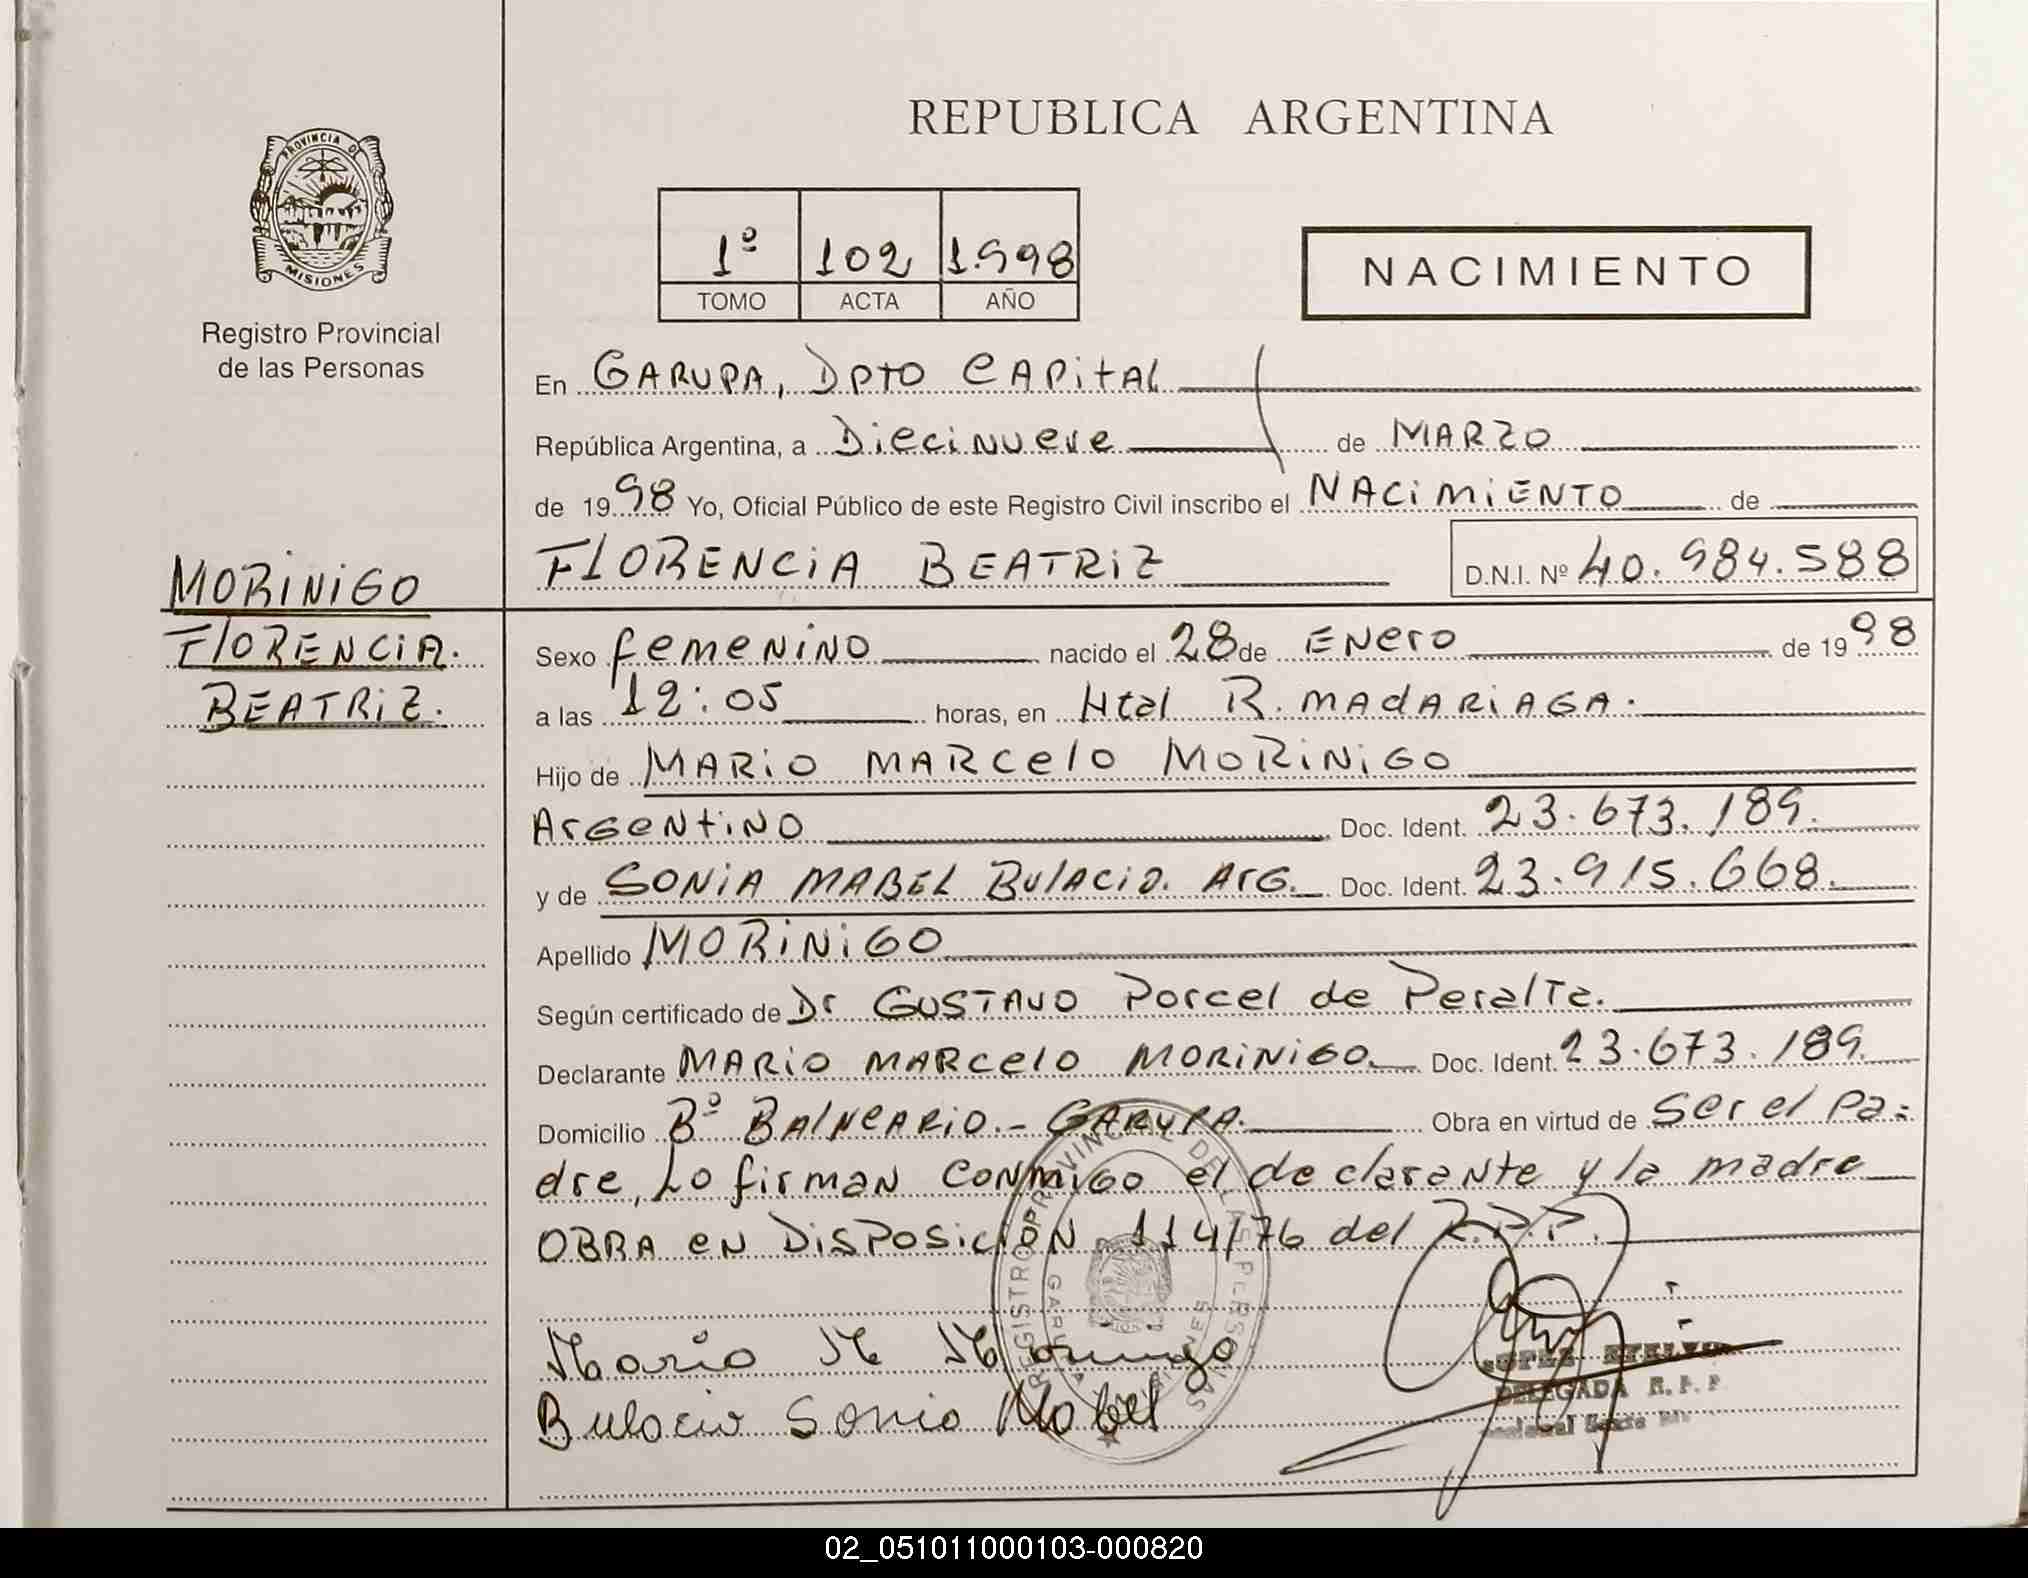 REPUBLICA ARGENTINA
PROVINCIA DE
MISIONES
Registro Provincial
de las Personas
1º 102 1.998
TOMO ACTA AÑO
NACIMIENTO
En GARUPA, DPTO CAPitAL
República Argentina, a Diecinueve de MARZO
de 1998 Yo, Oficial Público de este Registro Civil inscribo el NACiMiENTO de
FLORENCiA BEATRiZ D.N.I. Nº 40.984.588
MORiNiGO
FLORENCiA.
BEATRiZ.
Sexo femeNiNO nacido el 28 de ENero de 1998
a las 12:05 horas, en Htal R. MADARiAGA.
Hijo de MARiO MARcelO MORiNiGO
ArGeNtiNO Doc. Ident. 23.673.189.
y de SONiA MABEL BULACiO. ArG. Doc. Ident. 23.915.668.
Apellido MORiNiGO
Según certificado de Dr GUSTAVO Porcel de PeralTa.
Declarante MARiO MARcelO MORiNiGO Doc. Ident. 23.673.189.
Domicilio Bº BAlNeARiO.- GARUPA. Obra en virtud de Ser el Pa=
dre, Lo firmaN CONMiGO el declaraNte y la madre
OBRA eN DiSPOSiCiÓN 114/76 del R.P.P.
REGISTRO PROVINCIAL DE LAS PERSONAS
GARUPA MISIONES
Mario M Morinigo
Bulacio Sonia Mabel
DELEGADA R. P. P.
02_051011000103-000820